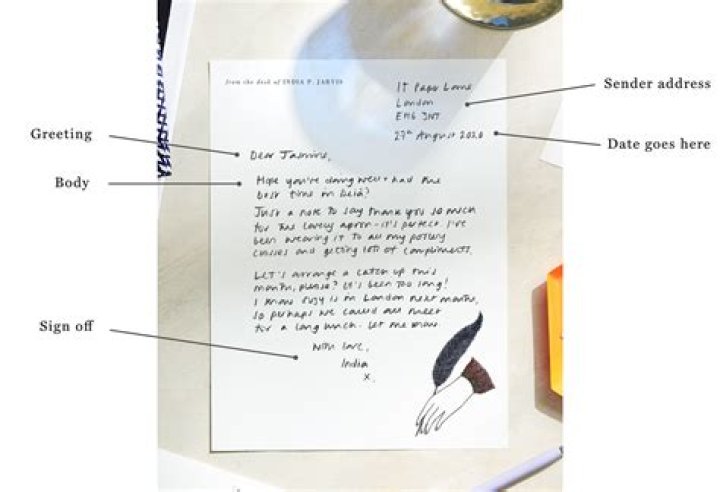 from the desk of INDIA P. JARVIS
17 Paper Lane
London
EH6 3NT
27th August 2020
Sender address
Date goes here
Greeting
Dear Jasmine,
Body
Hope you're doing well + had the
best time in Deià?
Just a note to say thank you so much
for this lovely apron - it's perfect. I've
been wearing it to all my pottery
classes and getting lots of compliments.
Let's arrange a catch up this
month, please? It's been too long!
I know Suzy is in London next month,
so perhaps we could all meet
for a long lunch. Let me know
Sign off
With love,
India
x.